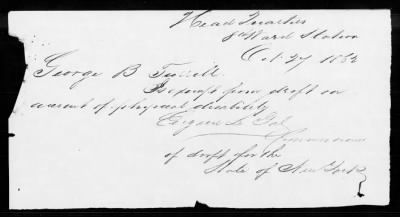 Head Quarters
8th Ward Station
Oct. 27 1862
George B Tyrrell.
Exempt from draft on
account of physical disability
Eugene L.
Commissioner
of draft for the
State of New York